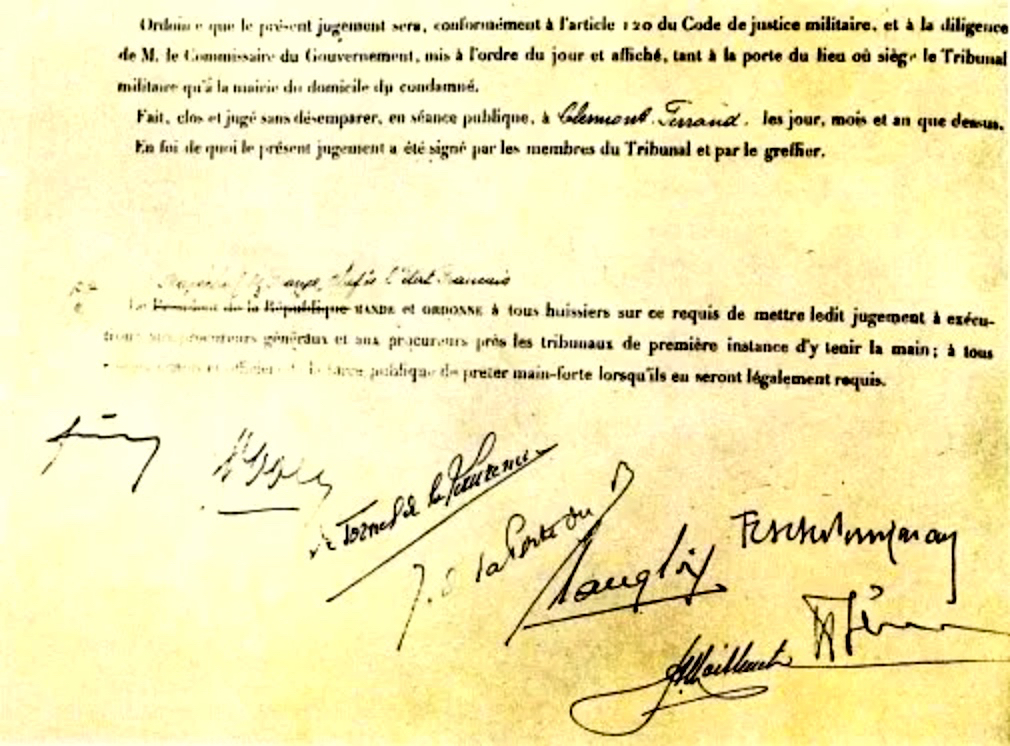 Ordonne que le présent jugement sera, conformément à l'article 120 du Code de justice militaire, et à la diligence
de M. le Commissaire du Gouvernement, mis à l'ordre du jour et affiché, tant à la porte du lieu où siège le Tribunal
militaire qu'à la mairie du domicile du condamné.
Fait, clos et jugé sans désemparer, en séance publique, à Clermont-Ferrand. les jour, mois et an que dessus.
En foi de quoi le présent jugement a été signé par les membres du Tribunal et par le greffier.
l'Etat Français
Le Président de la République MANDE et ORDONNE à tous huissiers sur ce requis de mettre ledit jugement à exécu-
procureurs généraux et aux procureurs près les tribunaux de première instance d'y tenir la main; à tous
la force publique de preter main-forte lorsqu'ils en seront légalement requis.
de la
J. de la Porte du
Langlois